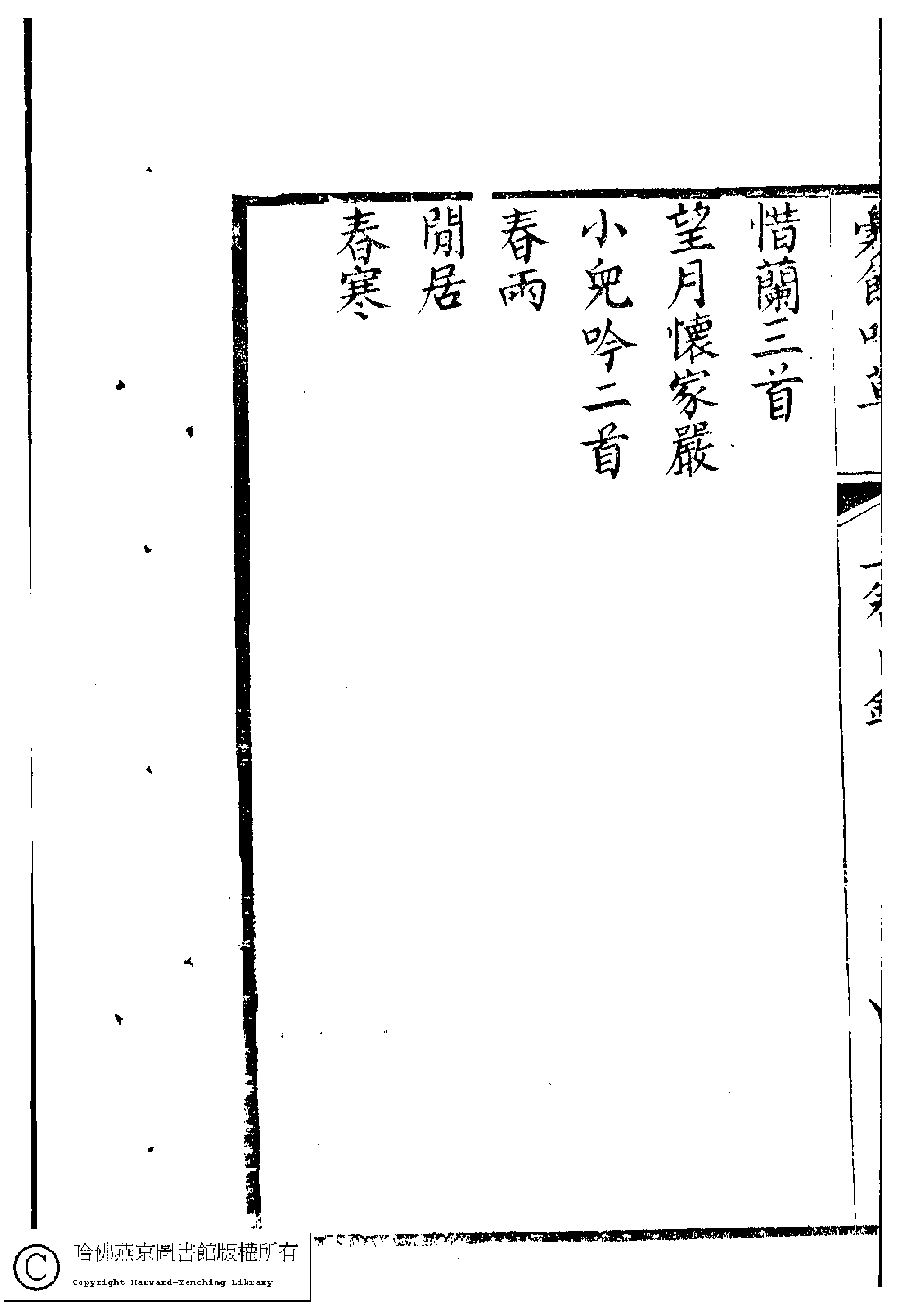 惜蘭三首
望月懷家嚴
小兒吟二首
春雨
閒居
春寒
哈佛燕京圖書館版權所有
Copyright Harvard-Yenching Library